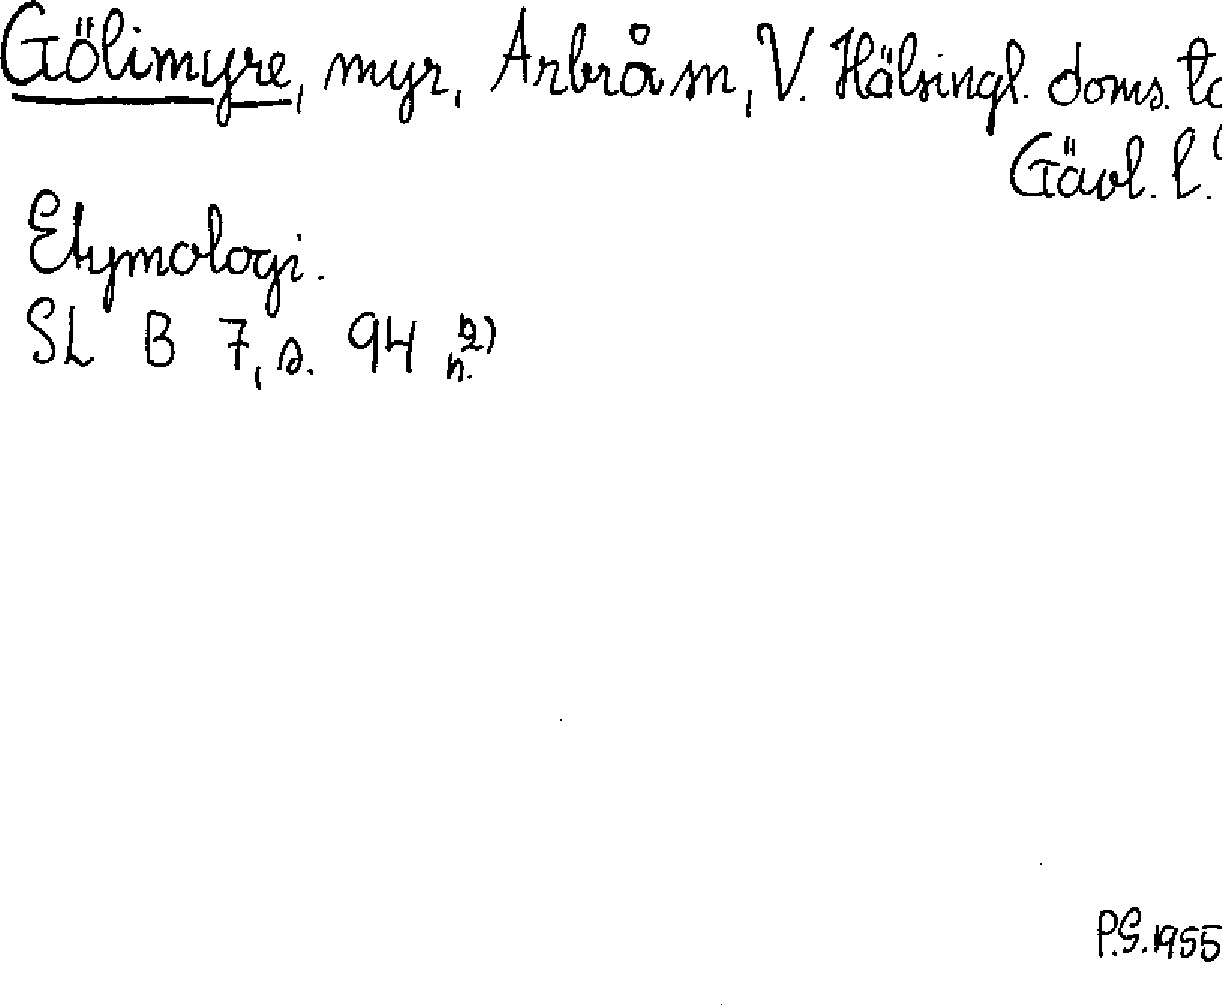 Gölimyre, myr, Arbrå sn, V. Hälsingl. doms.
Gävl. l.
Etymologi.
SL B 7, s. 94 n. 2)
P.S. 1955